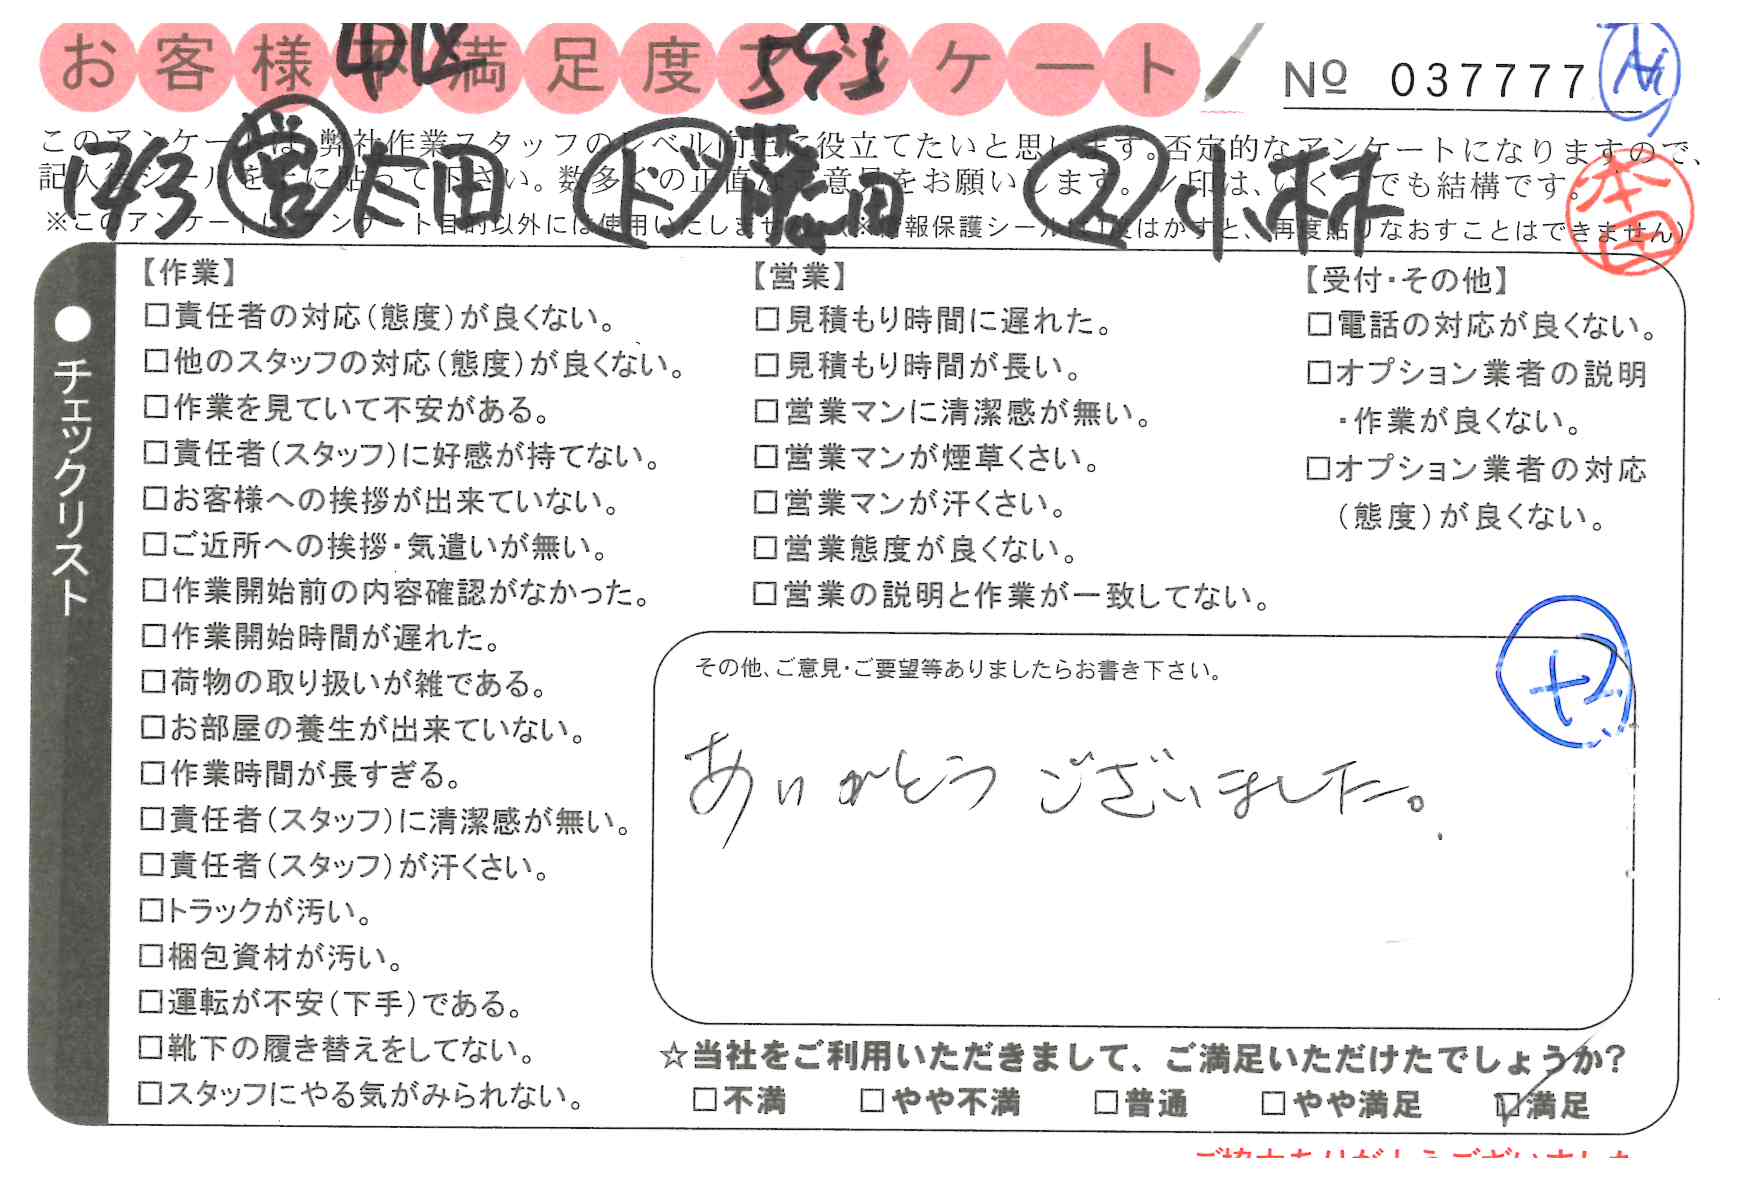 お客様不満足度アンケート
No 037777
このアンケートは、弊社作業スタッフのレベル向上に役立てたいと思います。否定的なアンケートになりますので、
記入後シールを上に貼って下さい。数多くの正直なご意見をお願いします。レ印は、いくつでも結構です。
※このアンケートは、アンケート目的以外には使用いたしません。(※情報保護シールは1度はがすと、再度貼りなおすことはできません)
中区 593
12/3 営 太田 ド 藤田 2 小林
本田
●チェックリスト
【作業】
□責任者の対応(態度)が良くない。
□他のスタッフの対応(態度)が良くない。
□作業を見ていて不安がある。
□責任者(スタッフ)に好感が持てない。
□お客様への挨拶が出来ていない。
□ご近所への挨拶・気遣いが無い。
□作業開始前の内容確認がなかった。
□作業開始時間が遅れた。
□荷物の取り扱いが雑である。
□お部屋の養生が出来ていない。
□作業時間が長すぎる。
□責任者(スタッフ)に清潔感が無い。
□責任者(スタッフ)が汗くさい。
□トラックが汚い。
□梱包資材が汚い。
□運転が不安(下手)である。
□靴下の履き替えをしてない。
□スタッフにやる気がみられない。
【営業】
□見積もり時間に遅れた。
□見積もり時間が長い。
□営業マンに清潔感が無い。
□営業マンが煙草くさい。
□営業マンが汗くさい。
□営業態度が良くない。
□営業の説明と作業が一致してない。
【受付・その他】
□電話の対応が良くない。
□オプション業者の説明
・作業が良くない。
□オプション業者の対応
(態度)が良くない。
その他、ご意見・ご要望等ありましたらお書き下さい。
セ
ありがとうございました。
☆当社をご利用いただきまして、ご満足いただけたでしょうか?
□不満 □やや不満 □普通 □やや満足 ☑満足
ご協力ありがとうございました